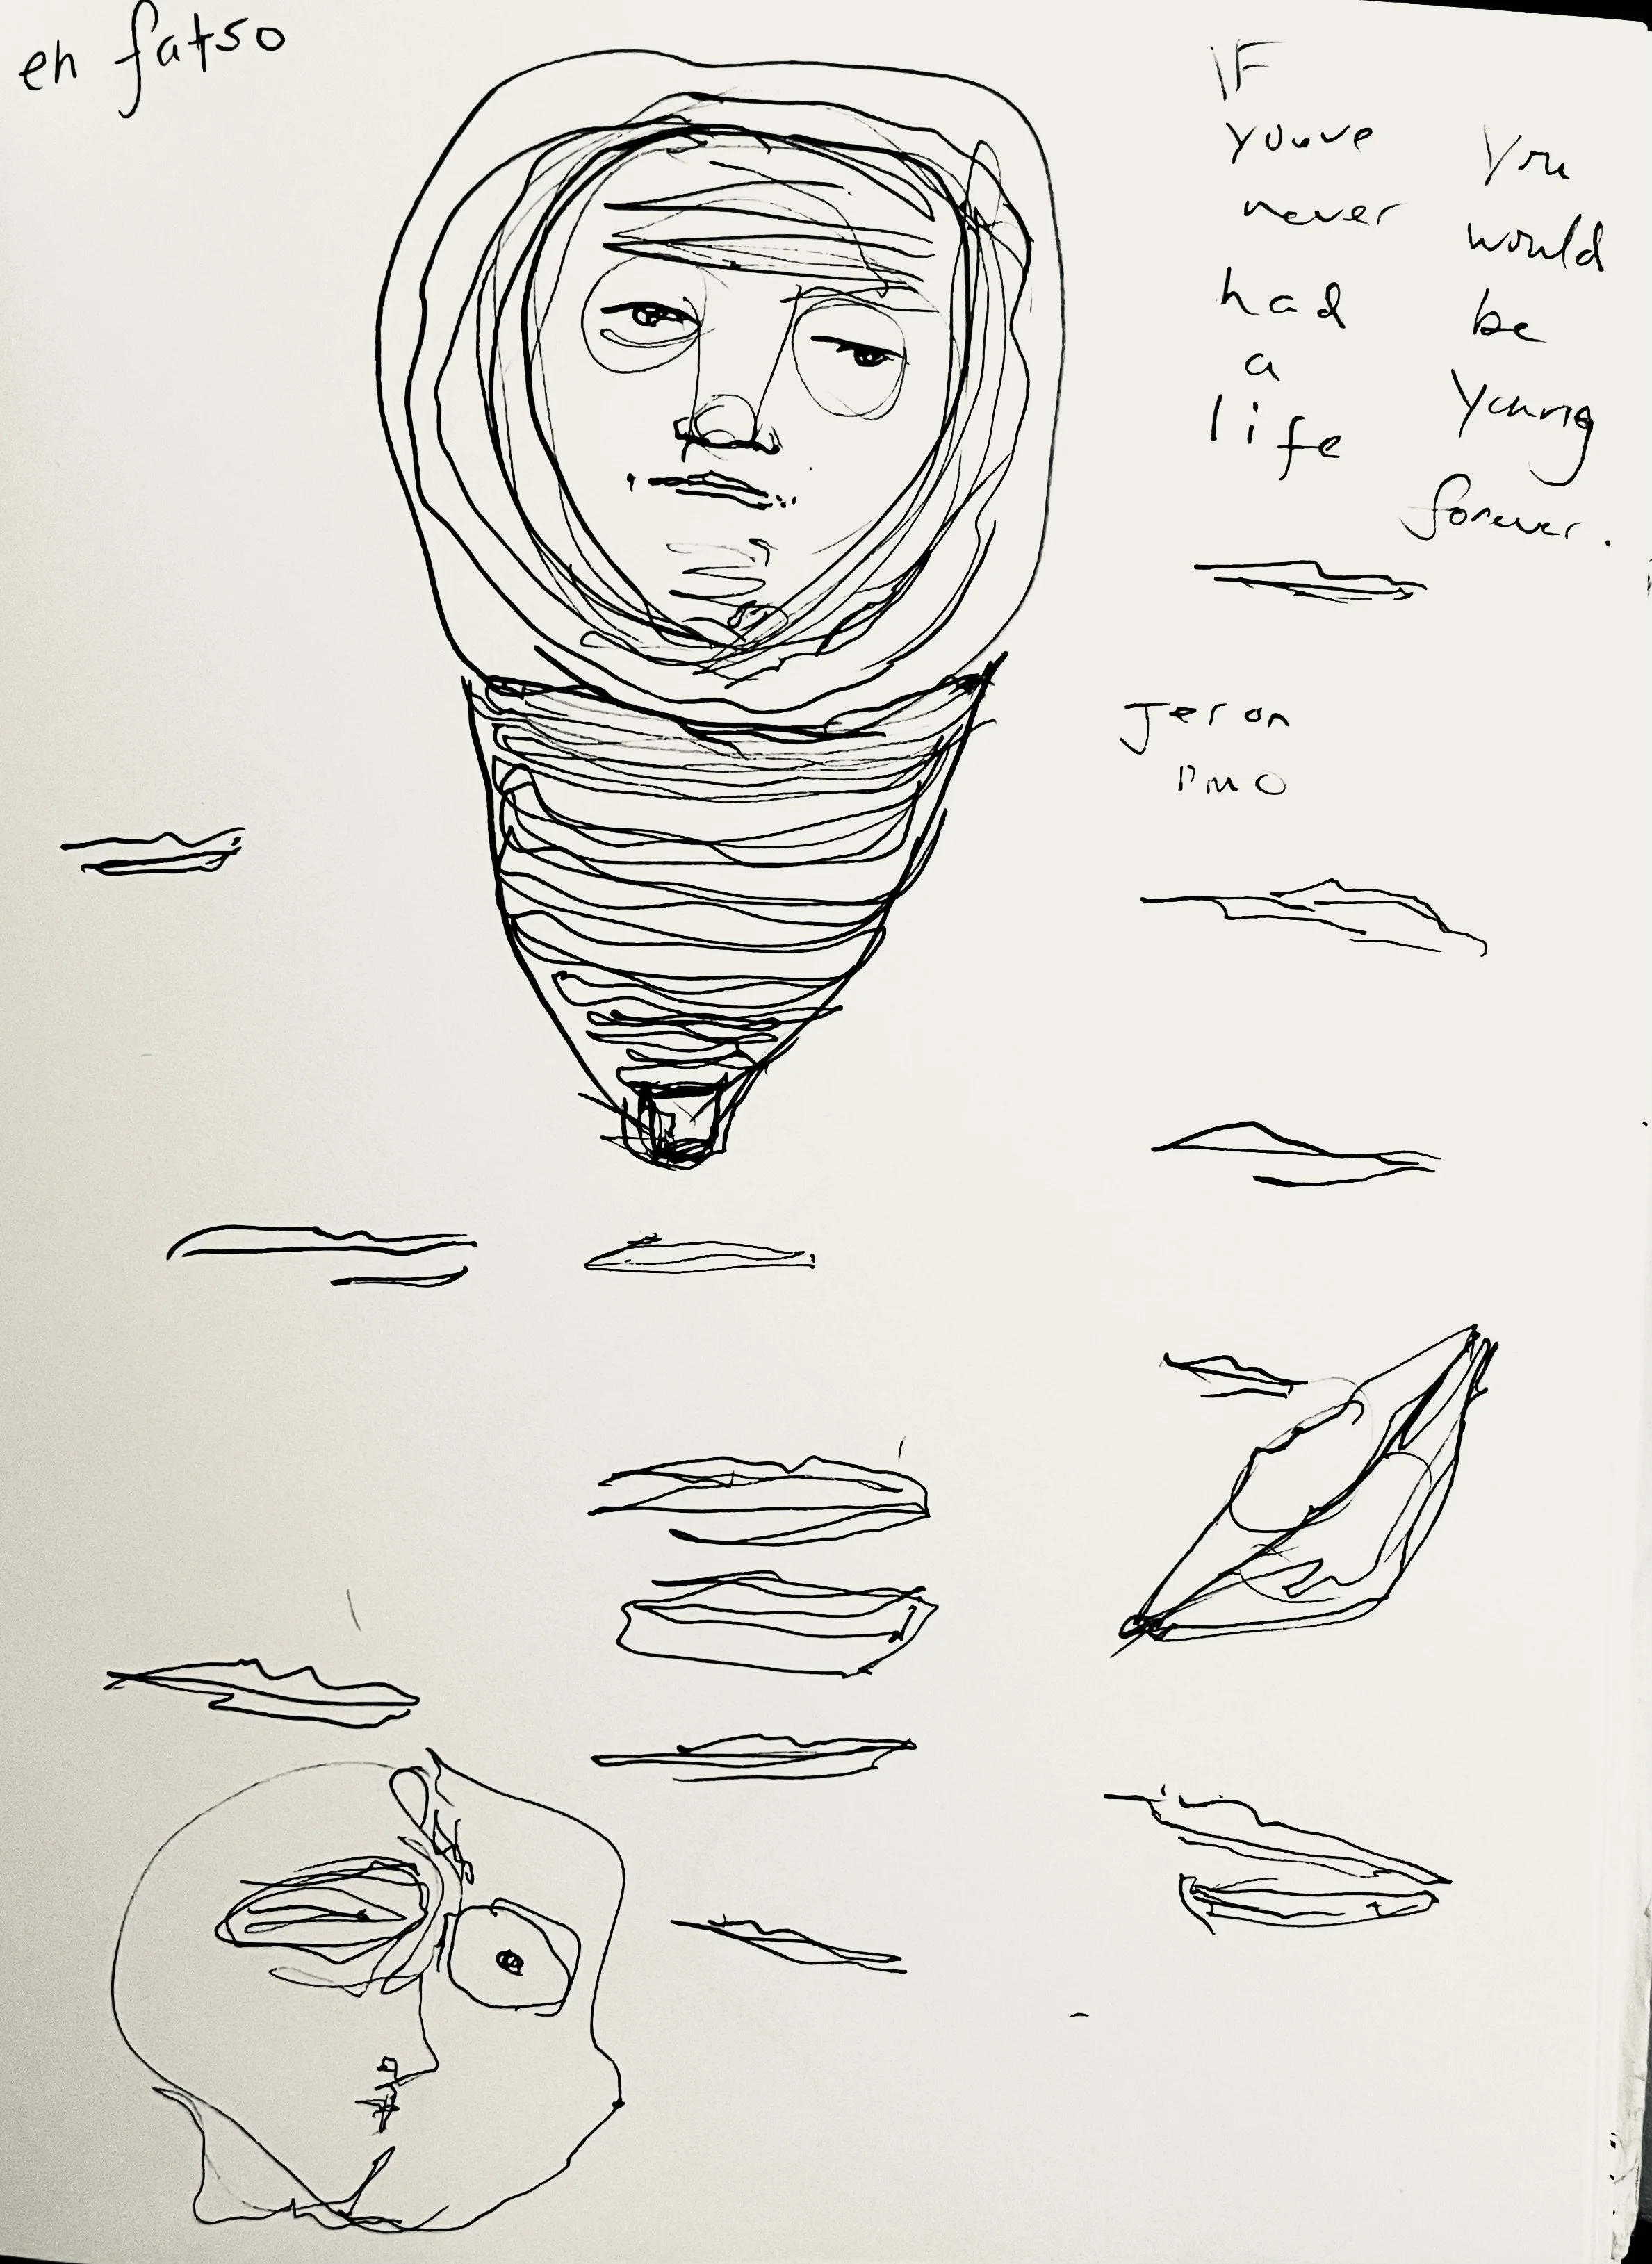 eh fatso
IF
youve
never
had
a
life
you
would
be
young
forever.
Jeron